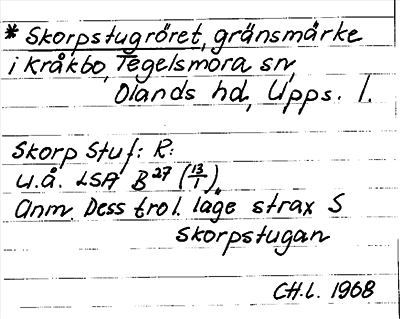 * Skorpstugröret, gränsmärke
i Kråkbo, Tegelsmora sn,
Olands hd, Upps. l.
Skorp Stuf: R:
u.å. LSA B 27 (13/1)
Anm. Dess trol. läge strax S
Skorpstugan
CH.L. 1968